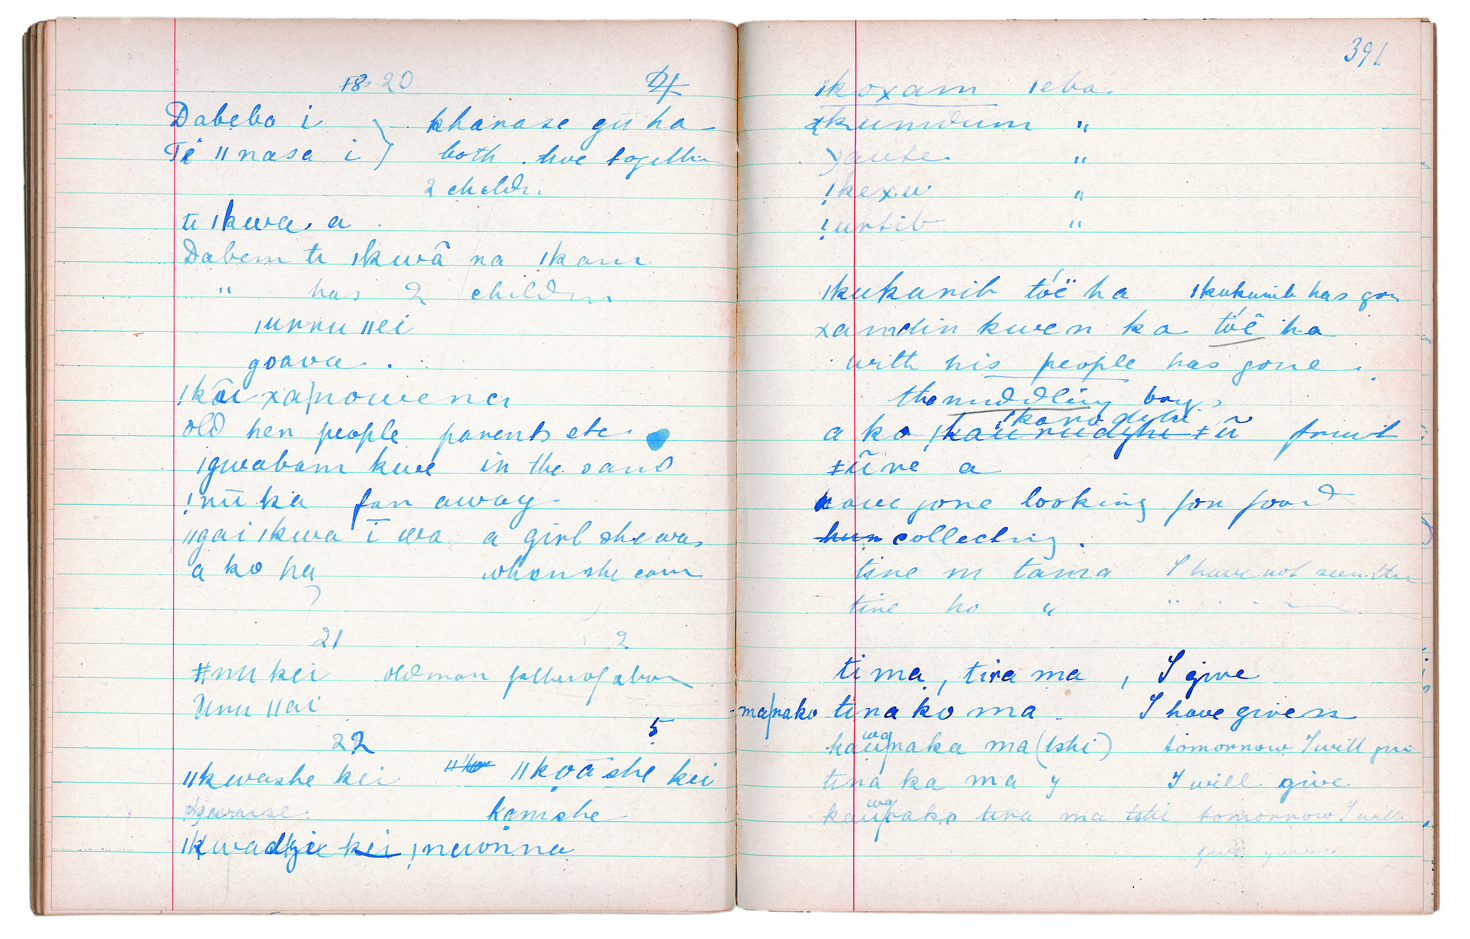 20
Dabebo i khanase gu ha
Te ǁnasa i both live together
2 childr.
ti ǀkwa, a
Dabem ti ǀkwâ na ǀkam
" has 2 children
ǀunnu ǁei
goava.
old her people parents etc
ǀgwabam kwe in the sand
ǃnū ka far away
ǁgai ǀkwa ī wa a girl she was
a ko ha when she cam
21 2
ǂnu kei old man father of abov
Unu ǁai
5
22
ǁkwashe kei ǁkoāshe kei
kamshe
ǀkwadzie kei ǀnuwnna
391
ǀkoxam ǀeba
ǂkumdum "
"
ǃkexu "
ǃursib "
ǀkukunib tóë ha ǀkukunib has gon
xamdin kwen ka tóë ha
with his people has gone.
the middling boys
a ko ǂū fruit
ǂūne a
have gone looking for food
hun collecting.
tine m tama I have not seen the
tine ho " "
ti ma, tira ma, I give
ma/nako tina ko ma. I have given
wa
kaunaka ma (tshi) tomorrow I will giv
tina ka ma y I will give
wa
kaunako tira ma tshi tomorrow I will
give you